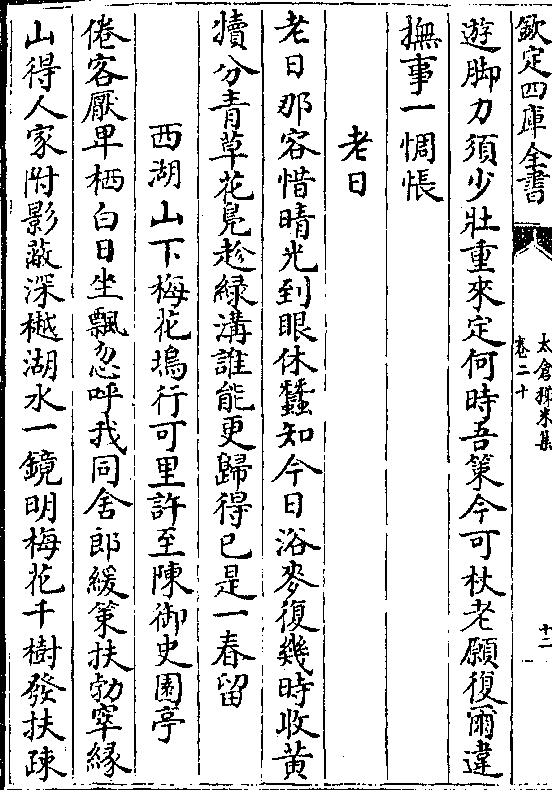 欽定四庫全書
太倉稊米集
卷二十
十二
遊脚力須少壯重來定何時吾策今可杖老願復爾違
撫事一惆悵
老日
老日那容惜晴光到眼休蠶知今日浴麥復幾時收黄
犢分青草花鳧趁緑溝誰能更歸得已是一春留
西湖山下梅花塢行可里許至陳御史園亭
倦客厭卑栖白日坐飄忽呼我同舍郎緩策扶勃窣縁
山得人家附影蔽深樾湖水一鏡明梅花千樹發扶疎